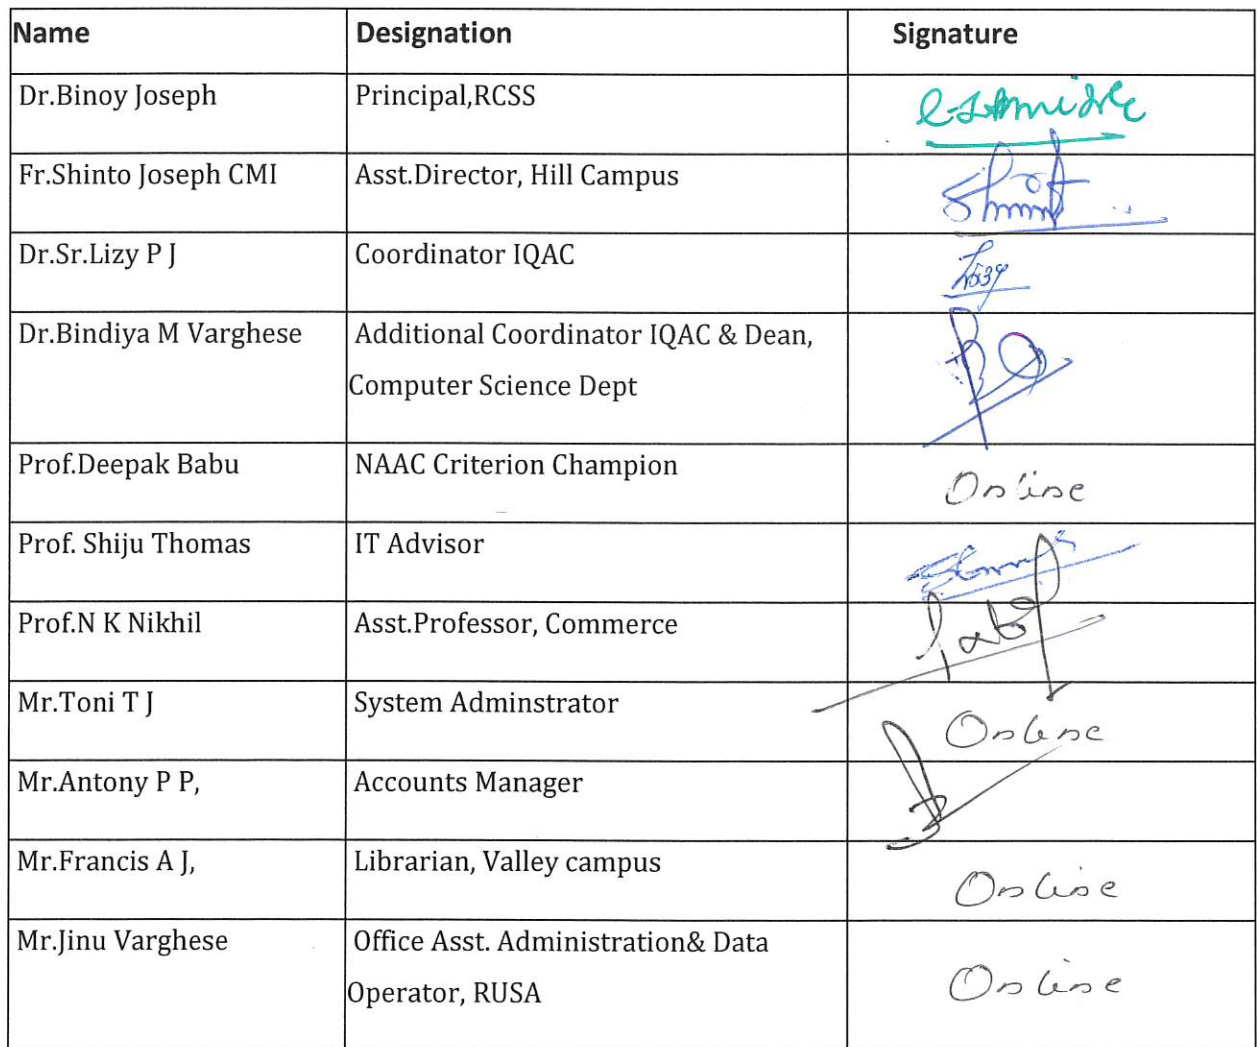 Name Designation Signature
Dr.Binoy Joseph Principal,RCSS
Fr.Shinto Joseph CMI Asst.Director, Hill Campus
Dr.Sr.Lizy P J Coordinator IQAC
Dr.Bindiya M Varghese Additional Coordinator IQAC & Dean,
Computer Science Dept
Prof.Deepak Babu NAAC Criterion Champion Online
Prof. Shiju Thomas IT Advisor
Prof.N K Nikhil Asst.Professor, Commerce
Mr.Toni T J System Adminstrator Online
Mr.Antony P P, Accounts Manager
Mr.Francis A J, Librarian, Valley campus Online
Mr.Jinu Varghese Office Asst. Administration& Data
Operator, RUSA Online